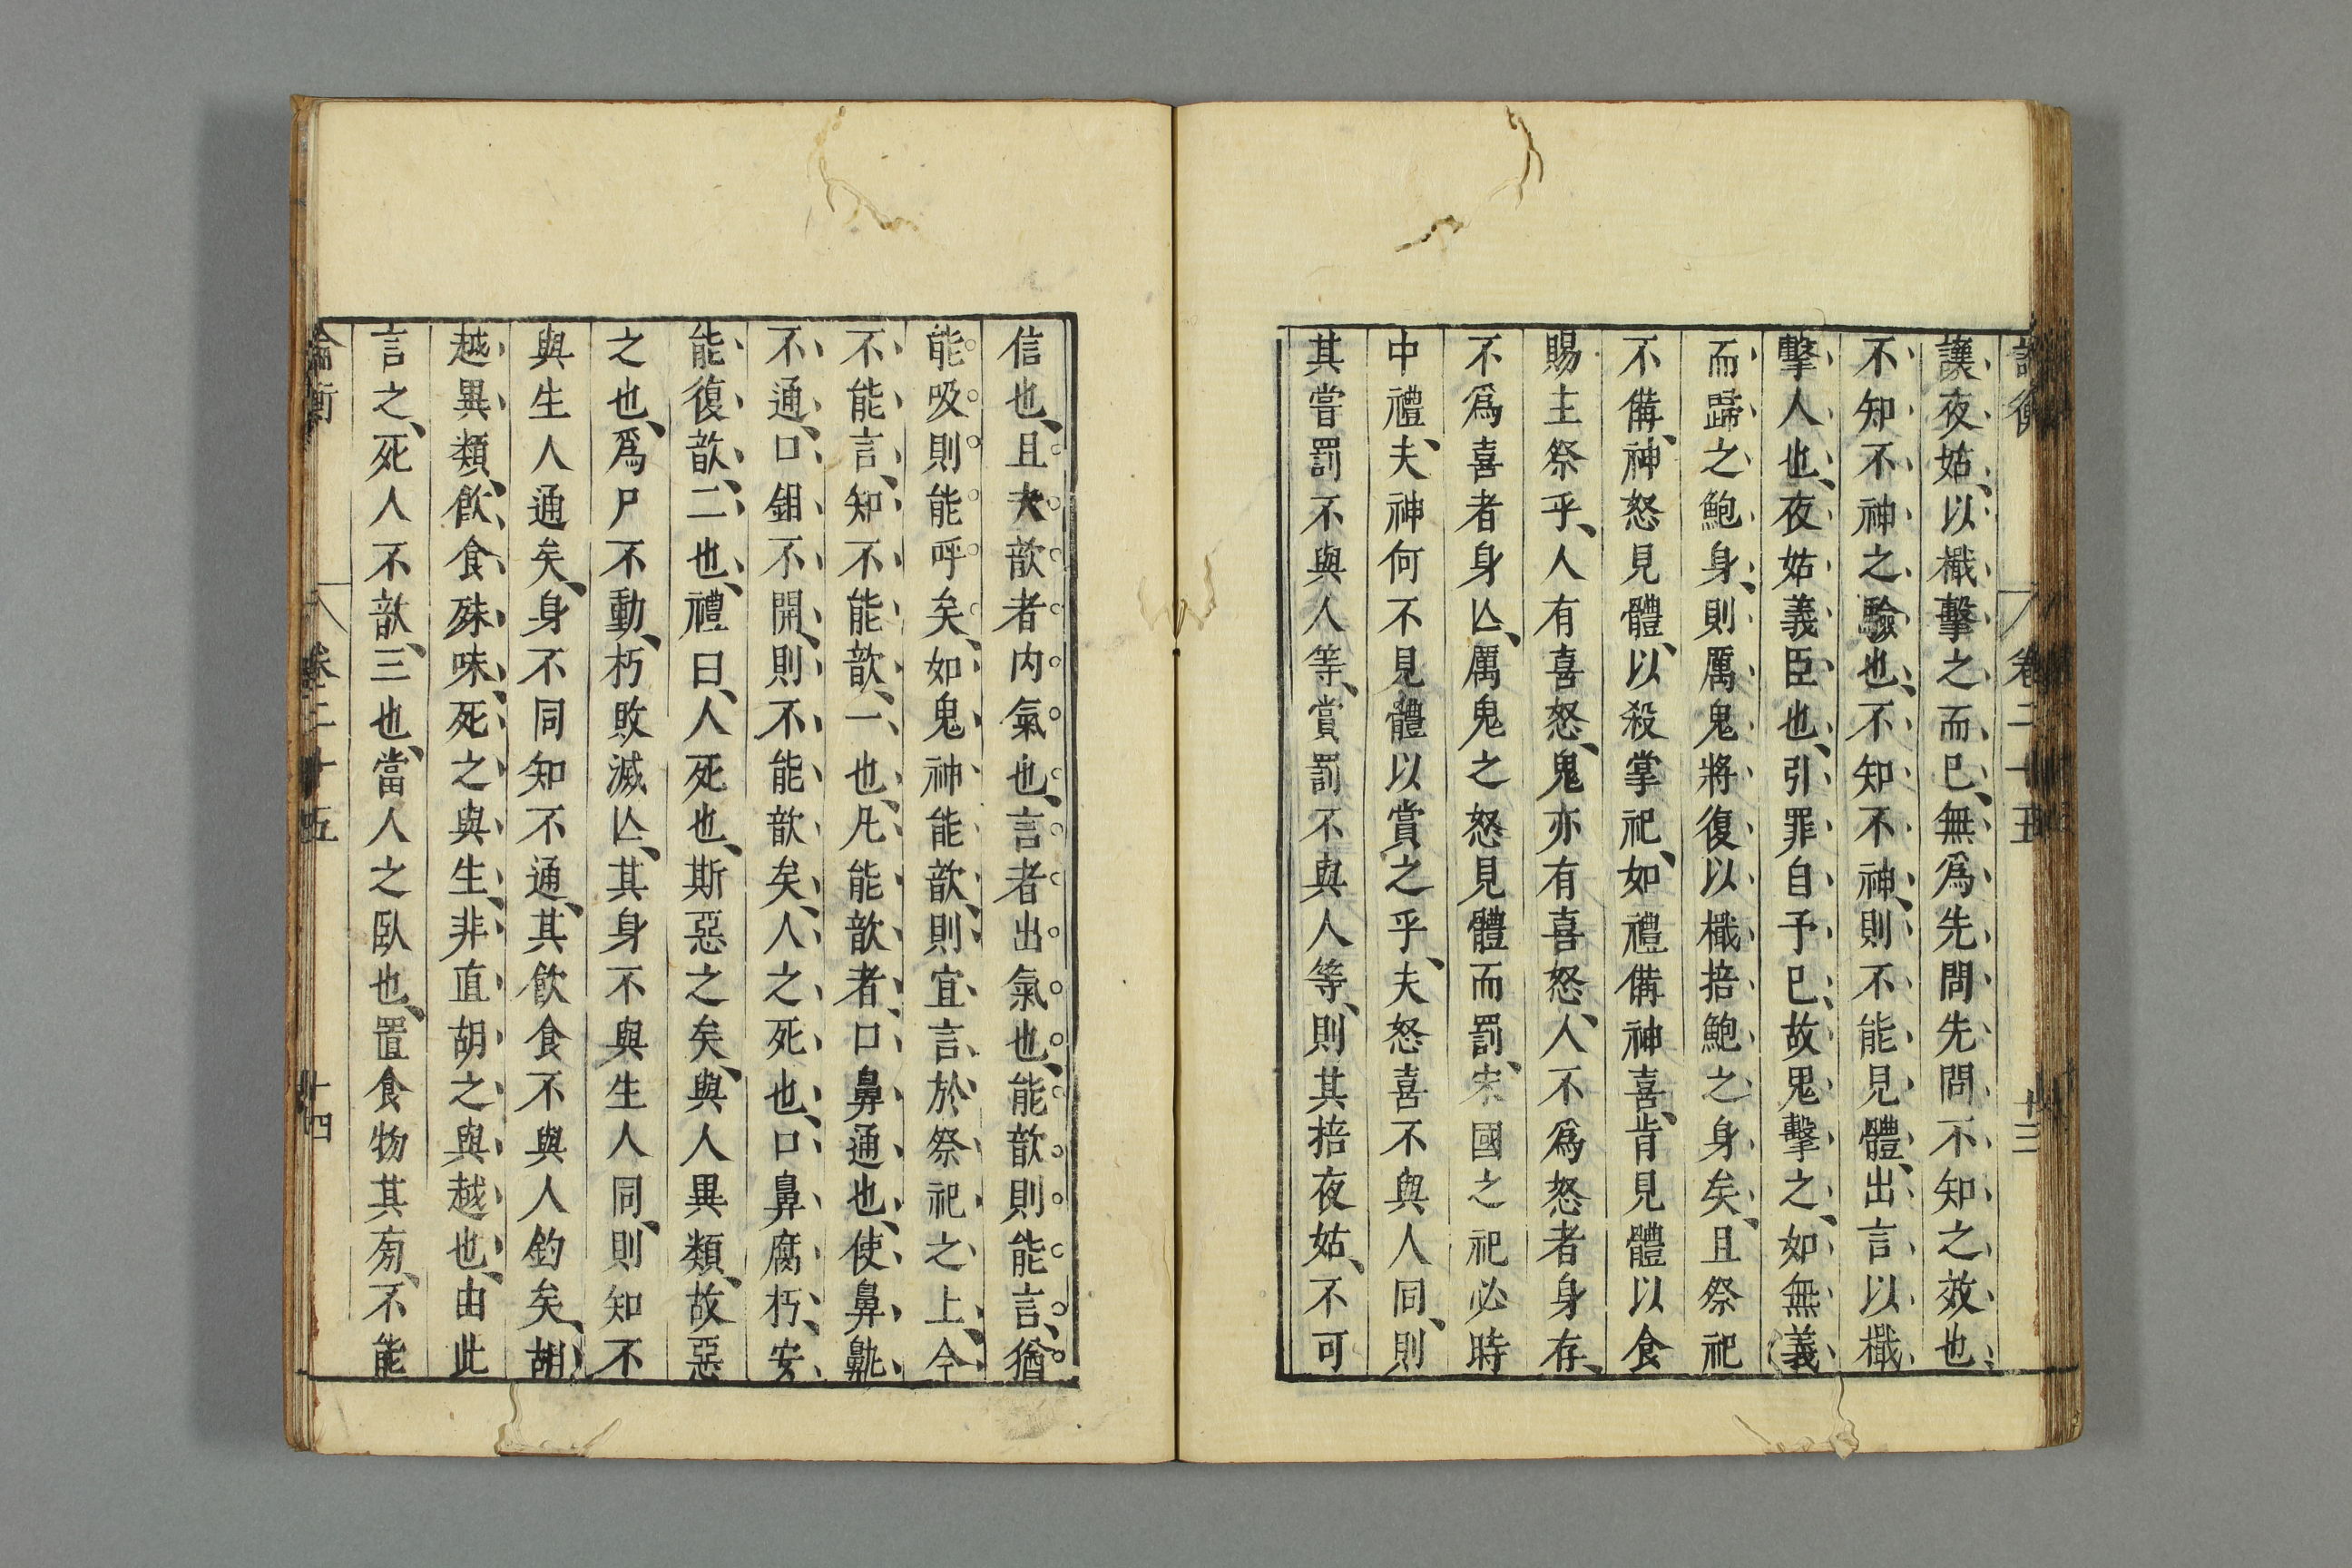 論衡 卷二十五 十三
讓夜姑、以檝擊之而已、無爲先問先問不知之效也、
不知不神之驗也、不知不神、則不能見體、出言以檝
擊人也、夜姑義臣也、引罪自予已、故鬼擊之、如無義
而蹏之鮑身、則厲鬼將復以檝掊鮑之身矣、且祭祀
不備、神怒見體、以殺掌祀、如禮備神喜、肯見體以食
賜主祭乎、人有喜怒、鬼亦有喜怒、人不爲怒者身存、
不爲喜者身亾、厲鬼之怒見體而罰、宋國之祀必時
中禮、夫神何不見體以賞之乎、夫怒喜不與人同、則
其嘗罰不與人等、賞罰不與人等、則其掊夜姑、不可
信也、且夫歆者内氣也、言者出氣也、能歆則能言、猶
能吸則能呼矣、如鬼神能歆、則宜言於祭祀之上、今
不能言、知不能歆、一也、凡能歆者、口鼻通也、使鼻鼽
不通、口鉗不開、則不能歆矣、人之死也、口鼻腐朽、安
能復歆、二也、禮曰、人死也、斯惡之矣、與人異類、故惡
之也、爲尸不動、朽敗滅亾、其身不與生人同、則知不
與生人通矣、身不同知不通、其飲食不與人鈞矣、胡
越異類、飲食殊味、死之與生、非直胡之與越也、由此
言之、死人不歆、三也、當人之臥也、置食物其旁、不能
論衡 卷二十五 十四